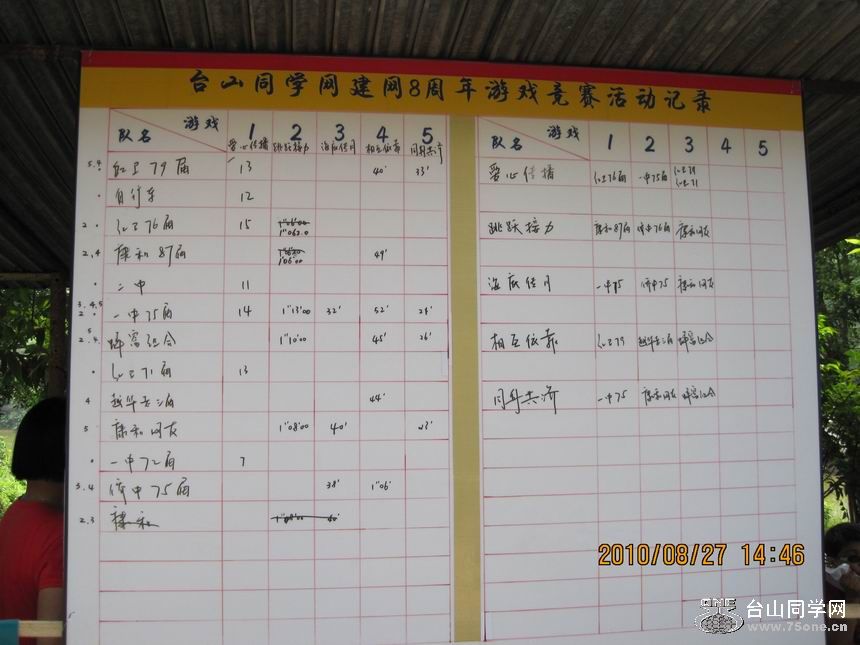 台山同学网建网8周年游戏竞赛活动记录
游戏 1 2 3 4 5
队名 爱心传播 跳跃接力 海底传月 相互依靠 同舟共济
5.4. 红卫79届 13 40' 33'
自行车 12
2. 红卫76届 15 1"06'00 1"06'2.0
2.4 康和87届 1"06'00 49'
二中 11
3.4.5 2. 一中75届 14 1"13'00 32' 52' 24'
5 2.4. 蜂窝组合 1"10'00 45' 26'
红卫71届 13
4 越华去二届 44'
5 康和网友 1"08'00 40' 23'
一中72届 7
3.4 侨中75届 38' 1"06'
2.3 康和 1"08'00 40'
游戏 1 2 3 4 5
队名
爱心传播 红卫76届 一中75届 红卫79 红卫71
跳跃接力 康和87届 红卫76届 康和网友
海底传月 一中75 侨中75 康和网友
相互依靠 红卫79 越华去二届 蜂窝组合
同舟共济 一中75 康和网友 蜂窝组合
2010/08/27 14:46
CNE 台山同学网
www.75one.cn